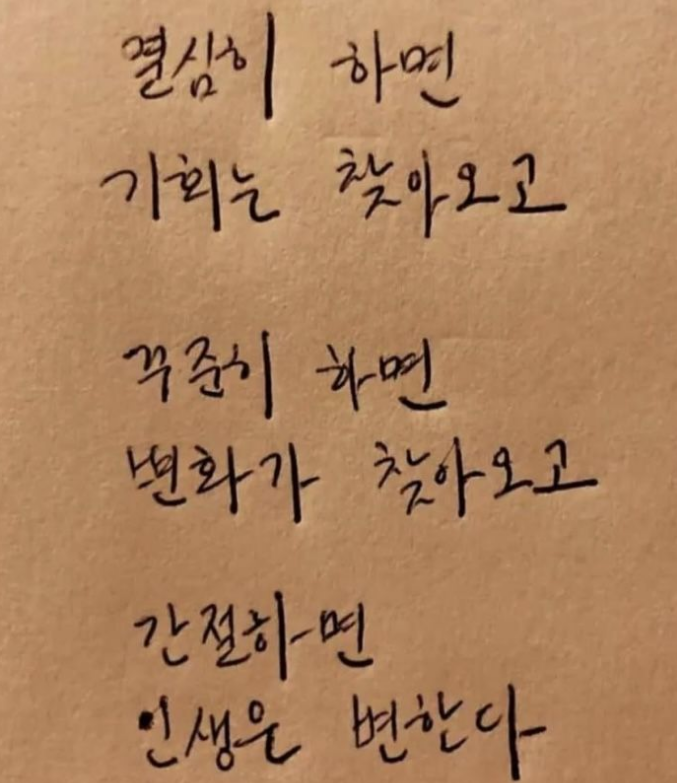 결심히 하면
기회는 찾아오고
꾸준히 하면
변화가 찾아오고
간절하면
인생은 변한다